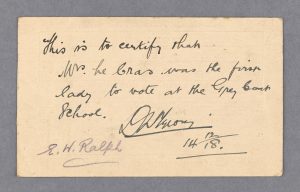 This is to certify that
Mrs. le Cras was the first
lady to vote at the Grey Coat
School.
E. H. Ralph
14 12/18.